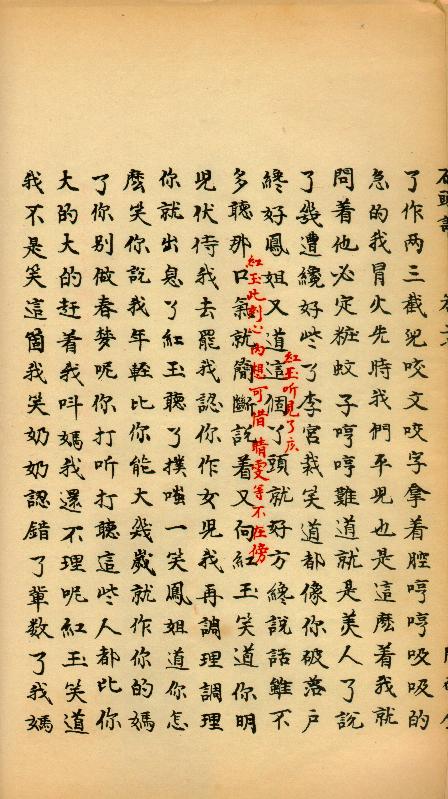 了作两三截兒咬文咬字拿着腔哼哼吸吸的
急的我冒火先時我們平兒也是這麽着我就
問着他必定粧蚊子哼哼難道就是美人了說
了幾遭纔好些了李宫裁笑道都像你破落户
終好鳳姐又道這個丫頭就好方終說話雖不
紅玉听見了広
多聽那口氣就簡斷說着又向紅玉笑道你明
紅玉此刻心内想可惜晴雯等不在傍
兒伏侍我去罷我認你作女兒我再調理調理
你就出息了紅玉聽了撲嗤一笑鳳姐道你怎
麽笑你說我年輕比你能大幾歲就作你的媽
了你别做春夢呢你打听打聽這些人都比你
大的大的赶着我呌媽我還不理呢紅玉笑道
我不是笑這箇我笑奶奶認錯了輩数了我媽